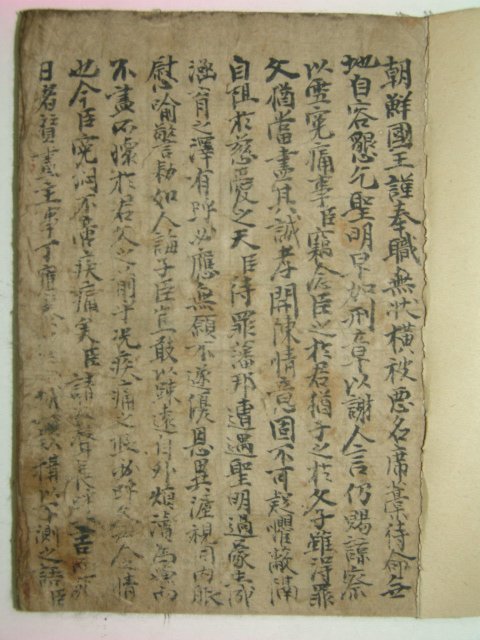 朝鮮國王謹奉職無狀橫被惡名席藁待命無
地自容懇乞聖明早加刑章以謝人言仍賜諒察
以雪冤痛事臣竊念臣之於君猶子之於父子雖得罪
父猶當盡其誠孝開陳情意固不可疑懼蔽滿
自阻於慈愛之天臣待罪藩邦遭遇聖明過蒙
涵育之澤有呼必應無願不遂優恩異渥視同內服
慰喻警勅如人誨子臣豈敢以踈遠自外煩瀆為
不盡不懷於君父之前乎況疾痛之極必呼父人之情
也今臣冤洞不啻疾痛矣臣請
日者贊畫主事丁 搆以不測之語臣